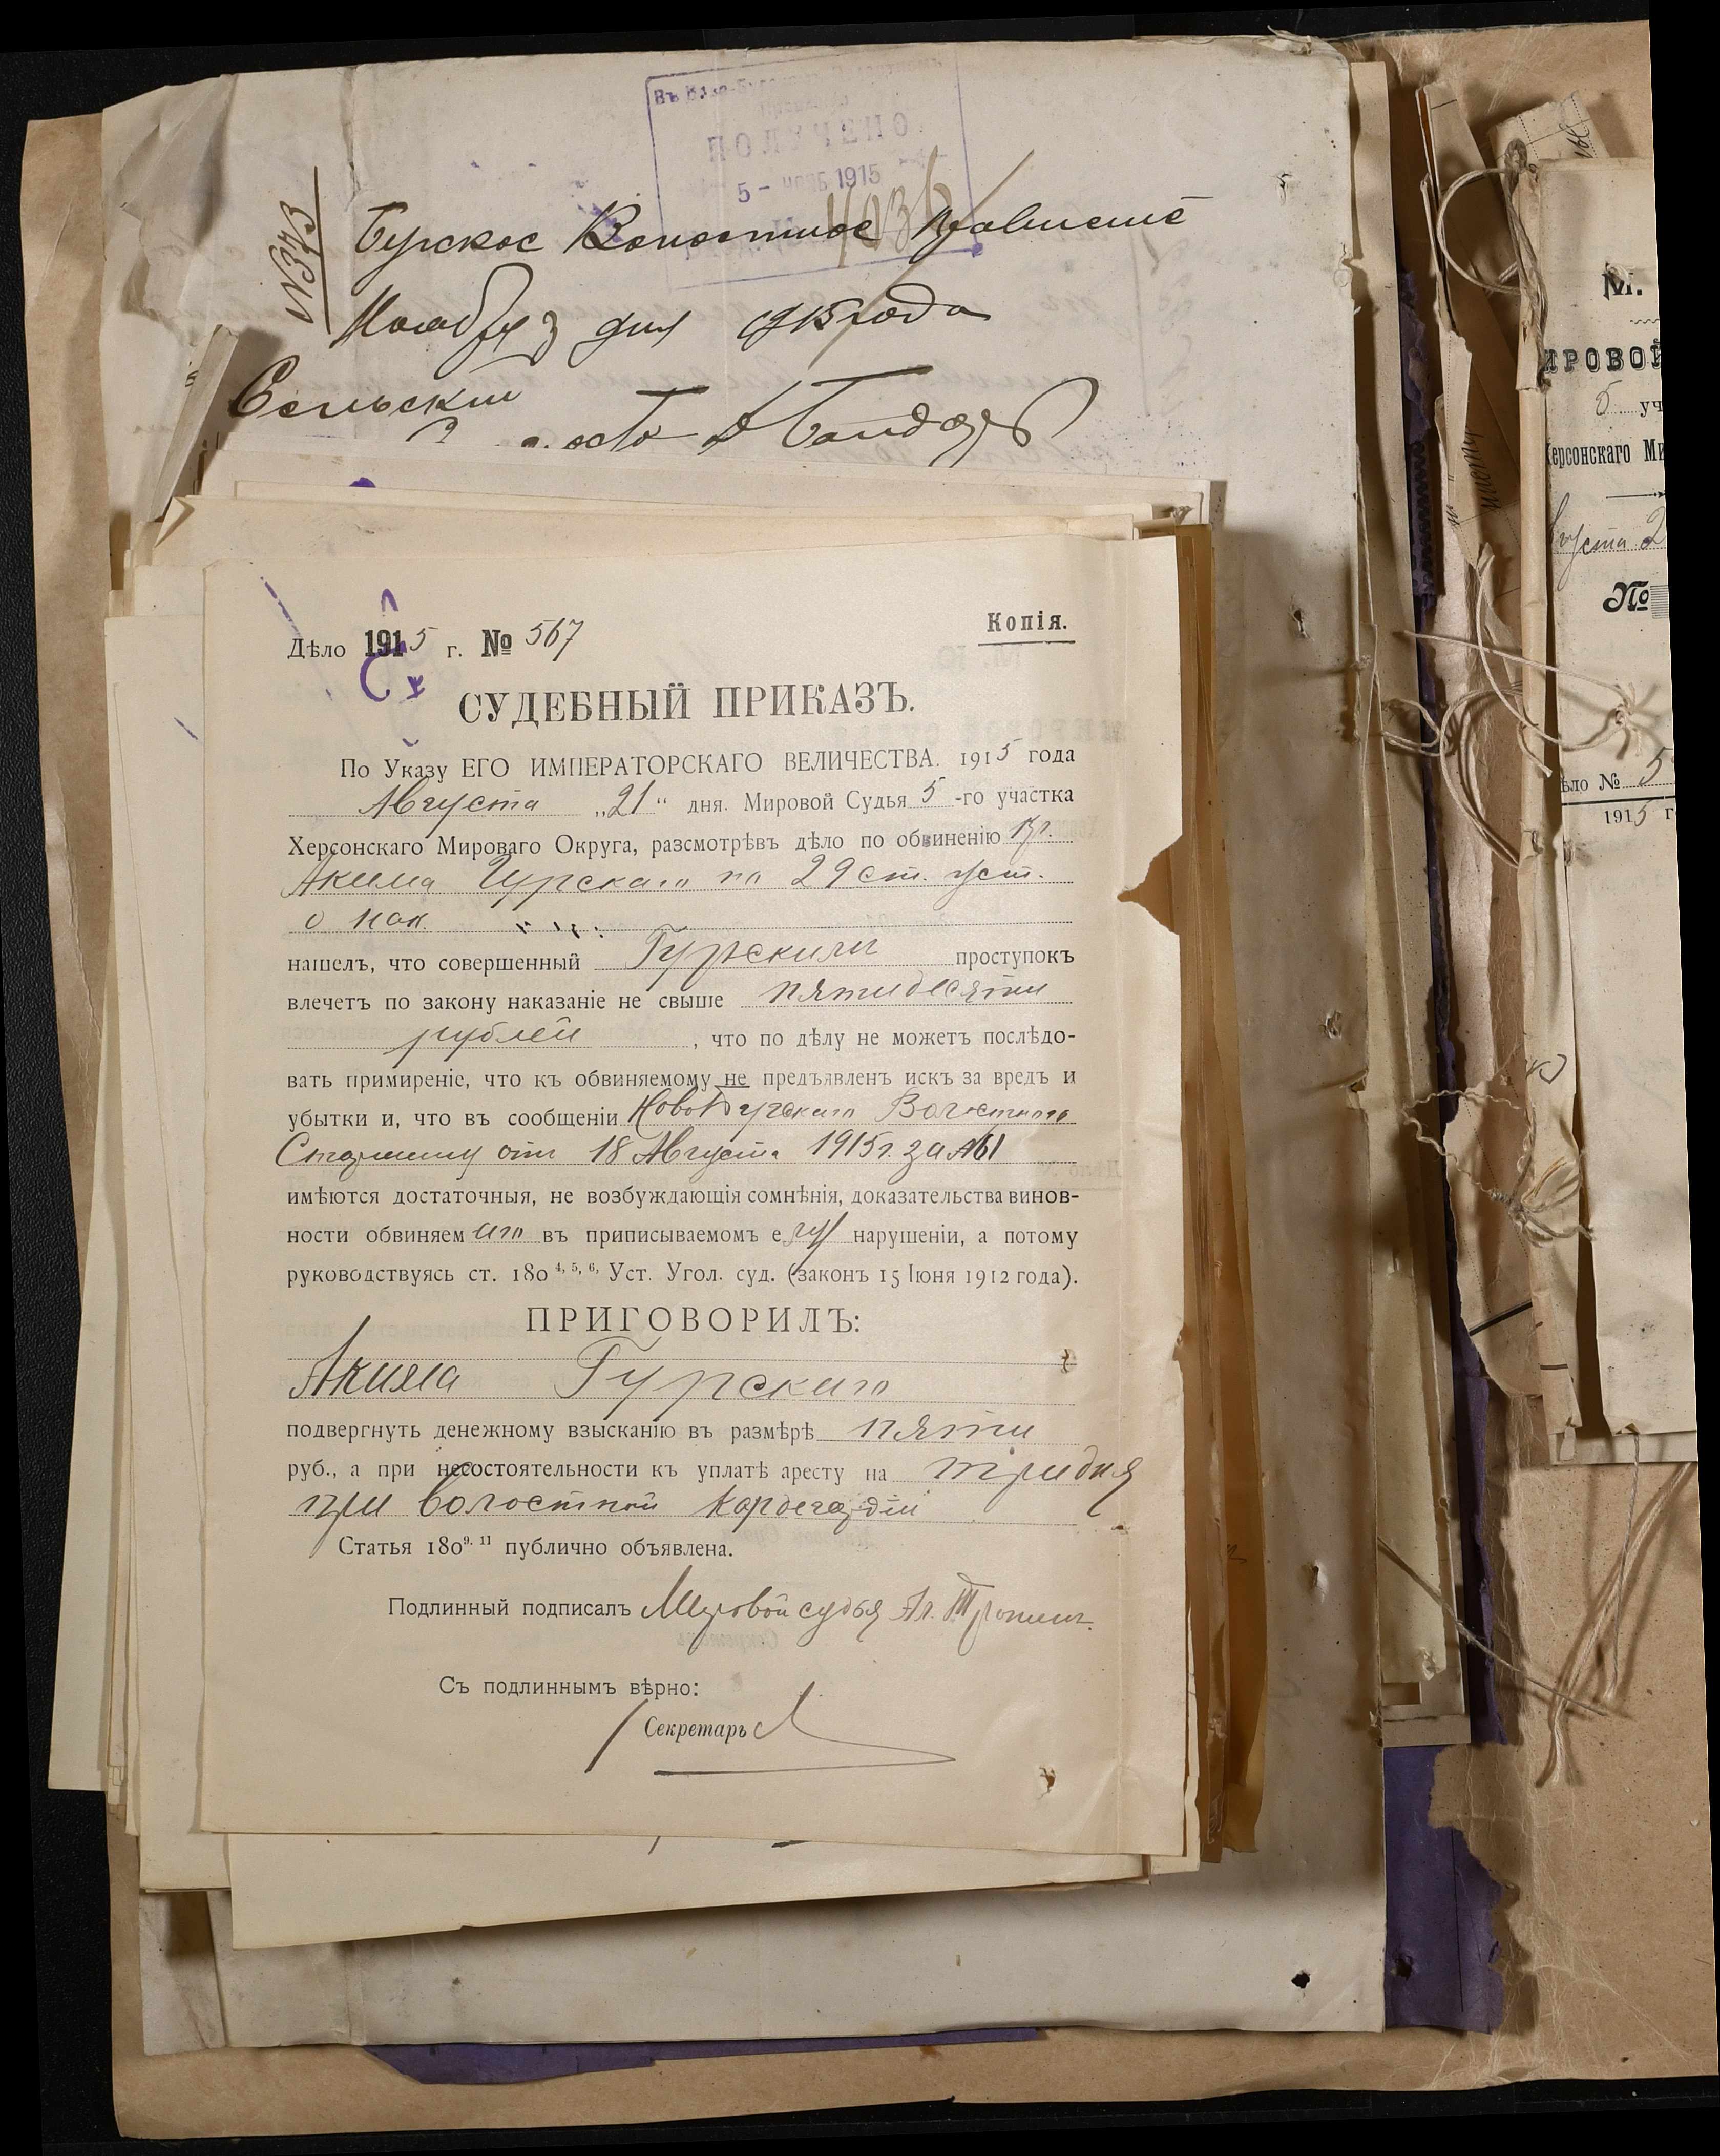 ПОЛУЧЕНО
5 - НОЯБ 1915
№373
Бугское Волостное Правленіе
Ноября 3 дня 1915 года
Сельскій
Дѣло 1915 г. № 567
Копія.
СУДЕБНЫЙ ПРИКАЗЪ.
По Указу ЕГО ИМПЕРАТОРСКАГО ВЕЛИЧЕСТВА. 1915 года
Августа „21“ дня. Мировой Судья 5-го участка
Херсонскаго Мироваго Округа, разсмотрѣвъ дѣло по обвиненію кр.
Акима Гурскаго по 29 ст. уст.
о нак.
нашелъ, что совершенный Гурскимъ проступокъ
влечетъ по закону наказаніе не свыше пятидесяти
рублей, что по дѣлу не можетъ послѣдо-
вать примиреніе, что къ обвиняемому не предъявленъ искъ за вредъ и
убытки и, что въ сообщеніи Ново Бугскаго Волостного
Старшины отъ 18 Августа 1915 г. за №
имѣются достаточныя, не возбуждающія сомнѣнія, доказательства винов-
ности обвиняемаго въ приписываемомъ ему нарушеніи, а потому
руководствуясь ст. 180 4, 5, 6, Уст. Угол. суд. (законъ 15 Іюня 1912 года).
ПРИГОВОРИЛЪ:
Акима Гурскаго
подвергнуть денежному взысканію въ размѣрѣ пяти
руб., а при несостоятельности къ уплатѣ аресту на три дня
при волостной кордегардіи
Статья 180 9. 11 публично объявлена.
Подлинный подписалъ Мировой судья Ал.
Съ подлиннымъ вѣрно:
Секретарь
М.
ИРОВОЙ
5 уч
Херсонскаго Ми
Августа 2
№
ѣло № 5
1915 г